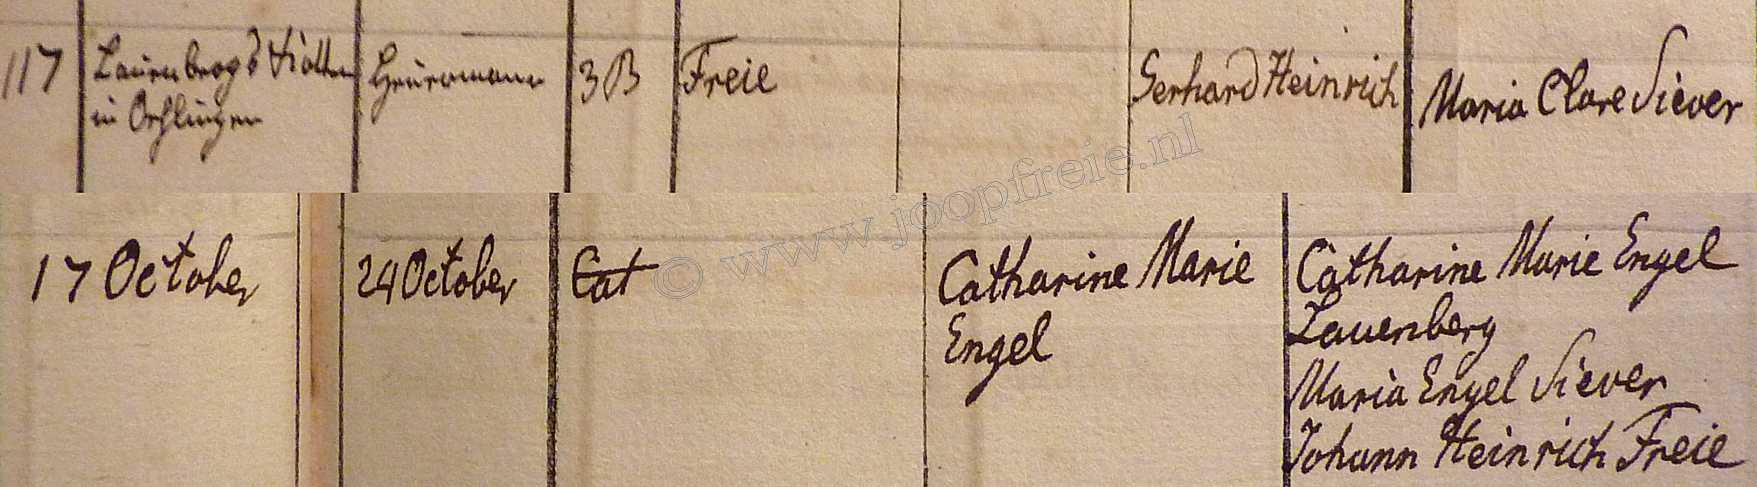 117 Lauenbergs Kotten Heuermann 3 B Freie Gerhard Heinrich Maria Clare Siever
in Oehlingen
© www.joopfreie.nl
17 October 24 October Cat Catharine Marie Catharine Marie Engel
Engel Lauenberg
Maria Engel Siever
Johann Heinrich Freie